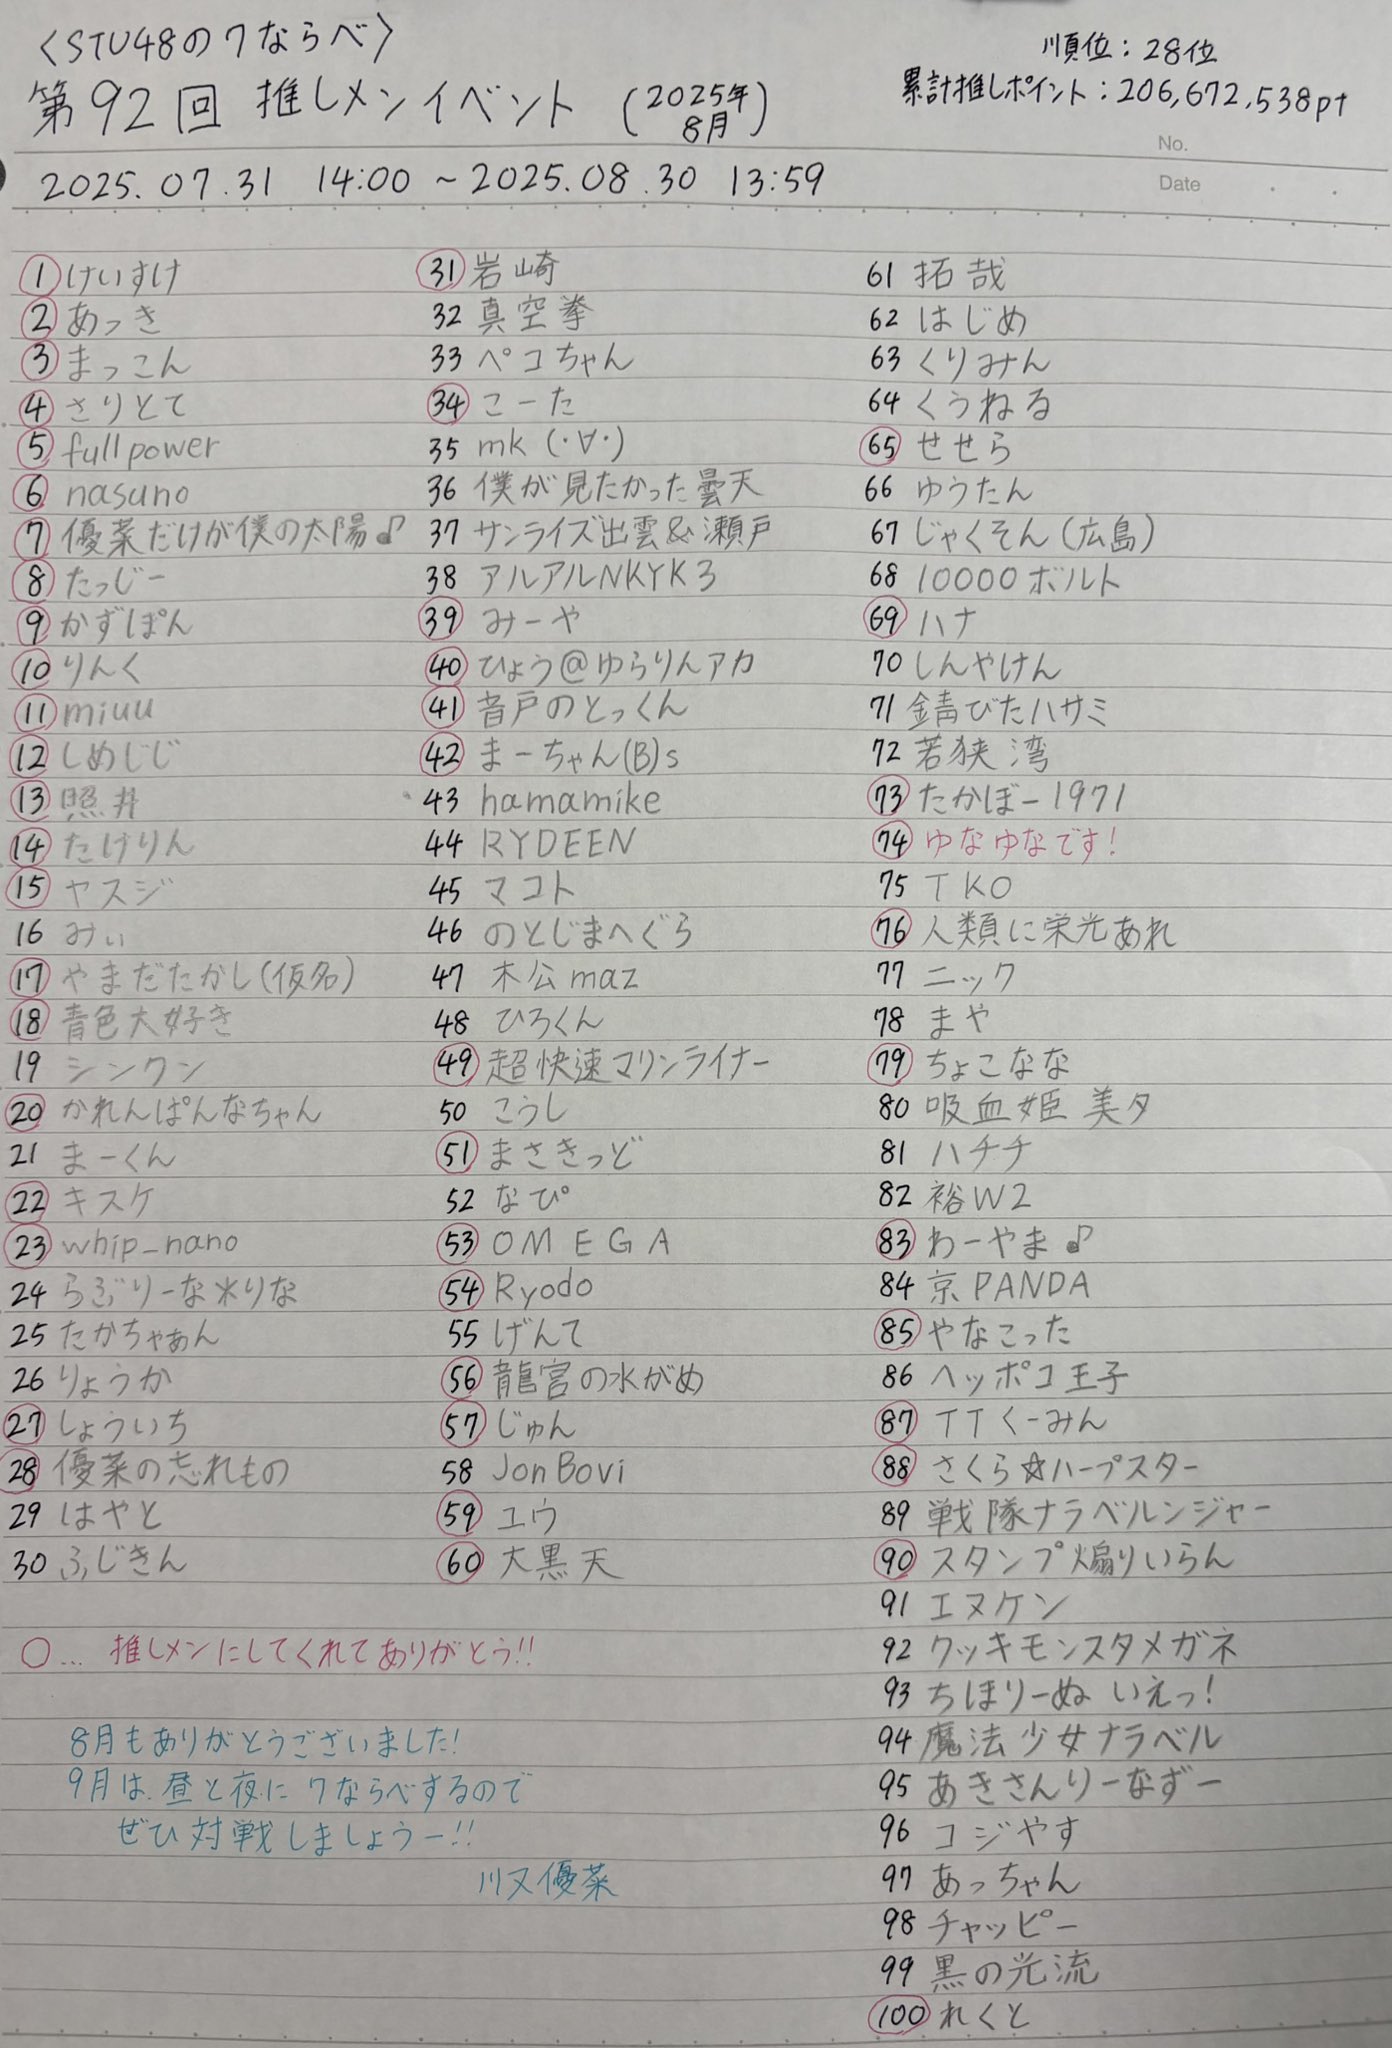 〈STU48の7ならべ〉
第92回 推しメンイベント (2025年8月)
順位：28位
累計推しポイント：206,672,538pt
No.
Date
2025.07.31 14:00 ~ 2025.08.30 13:59
1 けいすけ
2 あっき
3 まっこん
4 さりとて
5 fullpower
6 nasuno
7 優菜だけが僕の太陽♪
8 たっじー
9 かずぽん
10 りんく
11 miuu
12 しめじじ
13 照井
14 たけりん
15 ヤスジ
16 みぃ
17 やまだたかし(仮名)
18 青色大好き
19 シンクン
20 かれんぱんなちゃん
21 まーくん
22 キスケ
23 whip_nano
24 らぶりーな*りな
25 たかちゃぁん
26 りょうか
27 しょういち
28 優菜の忘れもの
29 はやと
30 ふじきん
31 岩崎
32 真空拳
33 ペコちゃん
34 こーた
35 mk (・∀・)
36 僕が見たかった曇天
37 サンライズ出雲&瀬戸
38 アルアルNKYK3
39 みーや
40 ひょう@ゆらりんアカ
41 音戸のとっくん
42 まーちゃん(B)s
43 hamamike
44 RYDEEN
45 マコト
46 のとじまへぐら
47 木公maz
48 ひろくん
49 超快速マリンライナー
50 こうし
51 まさきっど
52 なぴ
53 OMEGA
54 Ryodo
55 げんて
56 龍宮の水がめ
57 じゅん
58 JonBovi
59 ユウ
60 大黒天
61 拓哉
62 はじめ
63 くりみん
64 くうねる
65 せせら
66 ゆうたん
67 じゃくそん(広島)
68 10000ボルト
69 ハナ
70 しんやけん
71 錆びたハサミ
72 若狭湾
73 たかぼー1971
74 ゆなゆなです!
75 TKO
76 人類に栄光あれ
77 ニック
78 まや
79 ちょこなな
80 吸血姫 美夕
81 ハチチ
82 裕W2
83 わーやま♪
84 京PANDA
85 やなこった
86 ヘッポコ王子
87 TTくーみん
88 さくら☆ハープスター
89 戦隊ナラベルンジャー
90 スタンプ煽りいらん
91 エヌケン
92 クッキモンスタメガネ
93 ちほりーぬ いえっ!
94 魔法少女ナラベル
95 あきさんりーなずー
96 コジやす
97 あっちゃん
98 チャッピー
99 黒の光流
100 れくと
○… 推しメンにしてくれてありがとう!!
8月もありがとうございました!
9月は、昼と夜に 7ならべするので
ぜひ対戦しましょうー!!
川又優菜